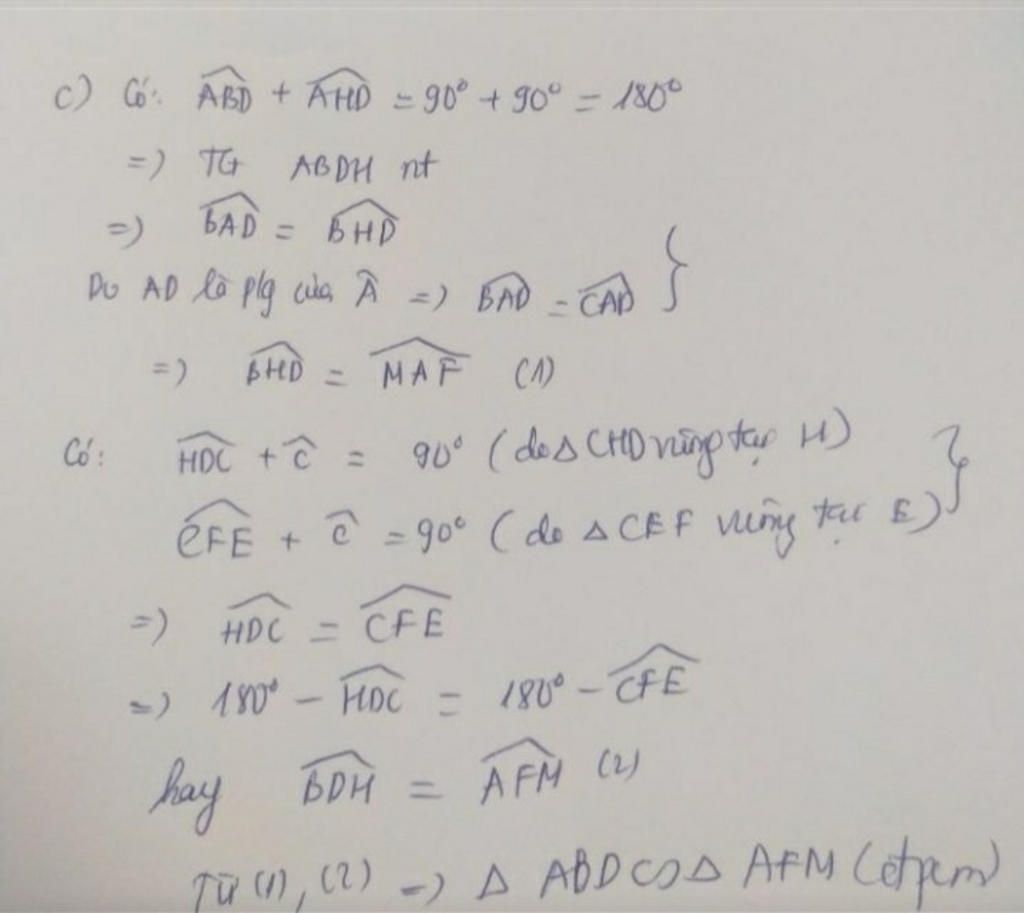 c) Có: ABD + AHD = 90° + 90° = 180°
=) TG ABDH nt
=) BAD = BHD
Do AD là p/g của A =) BAD = CAD }
=) BHD = MAF (1)
Có: HDC + C = 90° (do Δ CHD vuông tại H) }
CFE + C = 90° (do Δ CEF vuông tại E)
=) HDC = CFE
=) 180° - HDC = 180° - CFE
hay BDH = AFM (2)
Từ (1), (2) =) Δ ABD ∽ Δ AFM (đpcm)